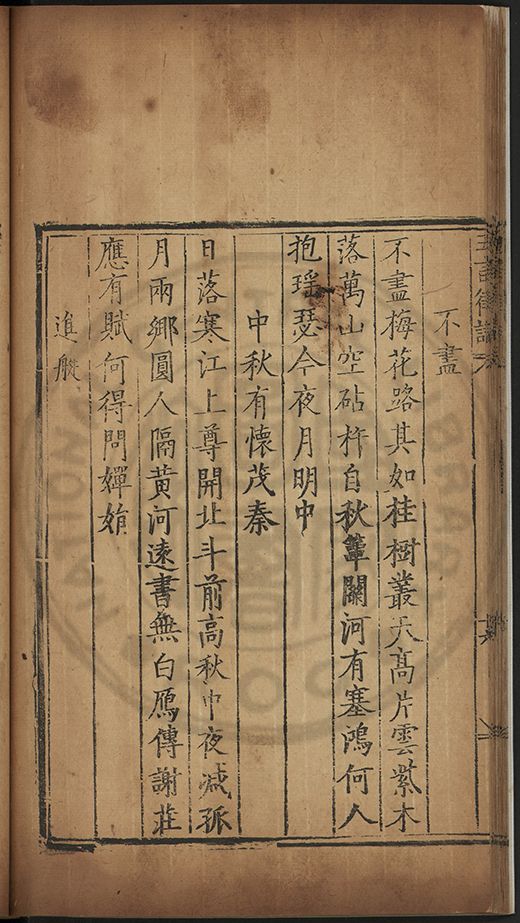 不盡
不盡梅花路其如桂樹叢天高片雲紫木
落萬山空砧杵自秋簟關河有塞鴻何人
抱瑤瑟今夜月明中
中秋有懷茂秦
日落寒江上尊開北斗前高秋中夜減孤
月兩鄉圓人隔黃河遠書無白鴈傳謝莊
應有賦何得問嬋娟
進艇